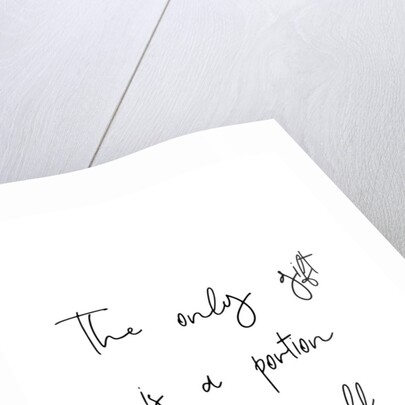 The only gift
is a portion